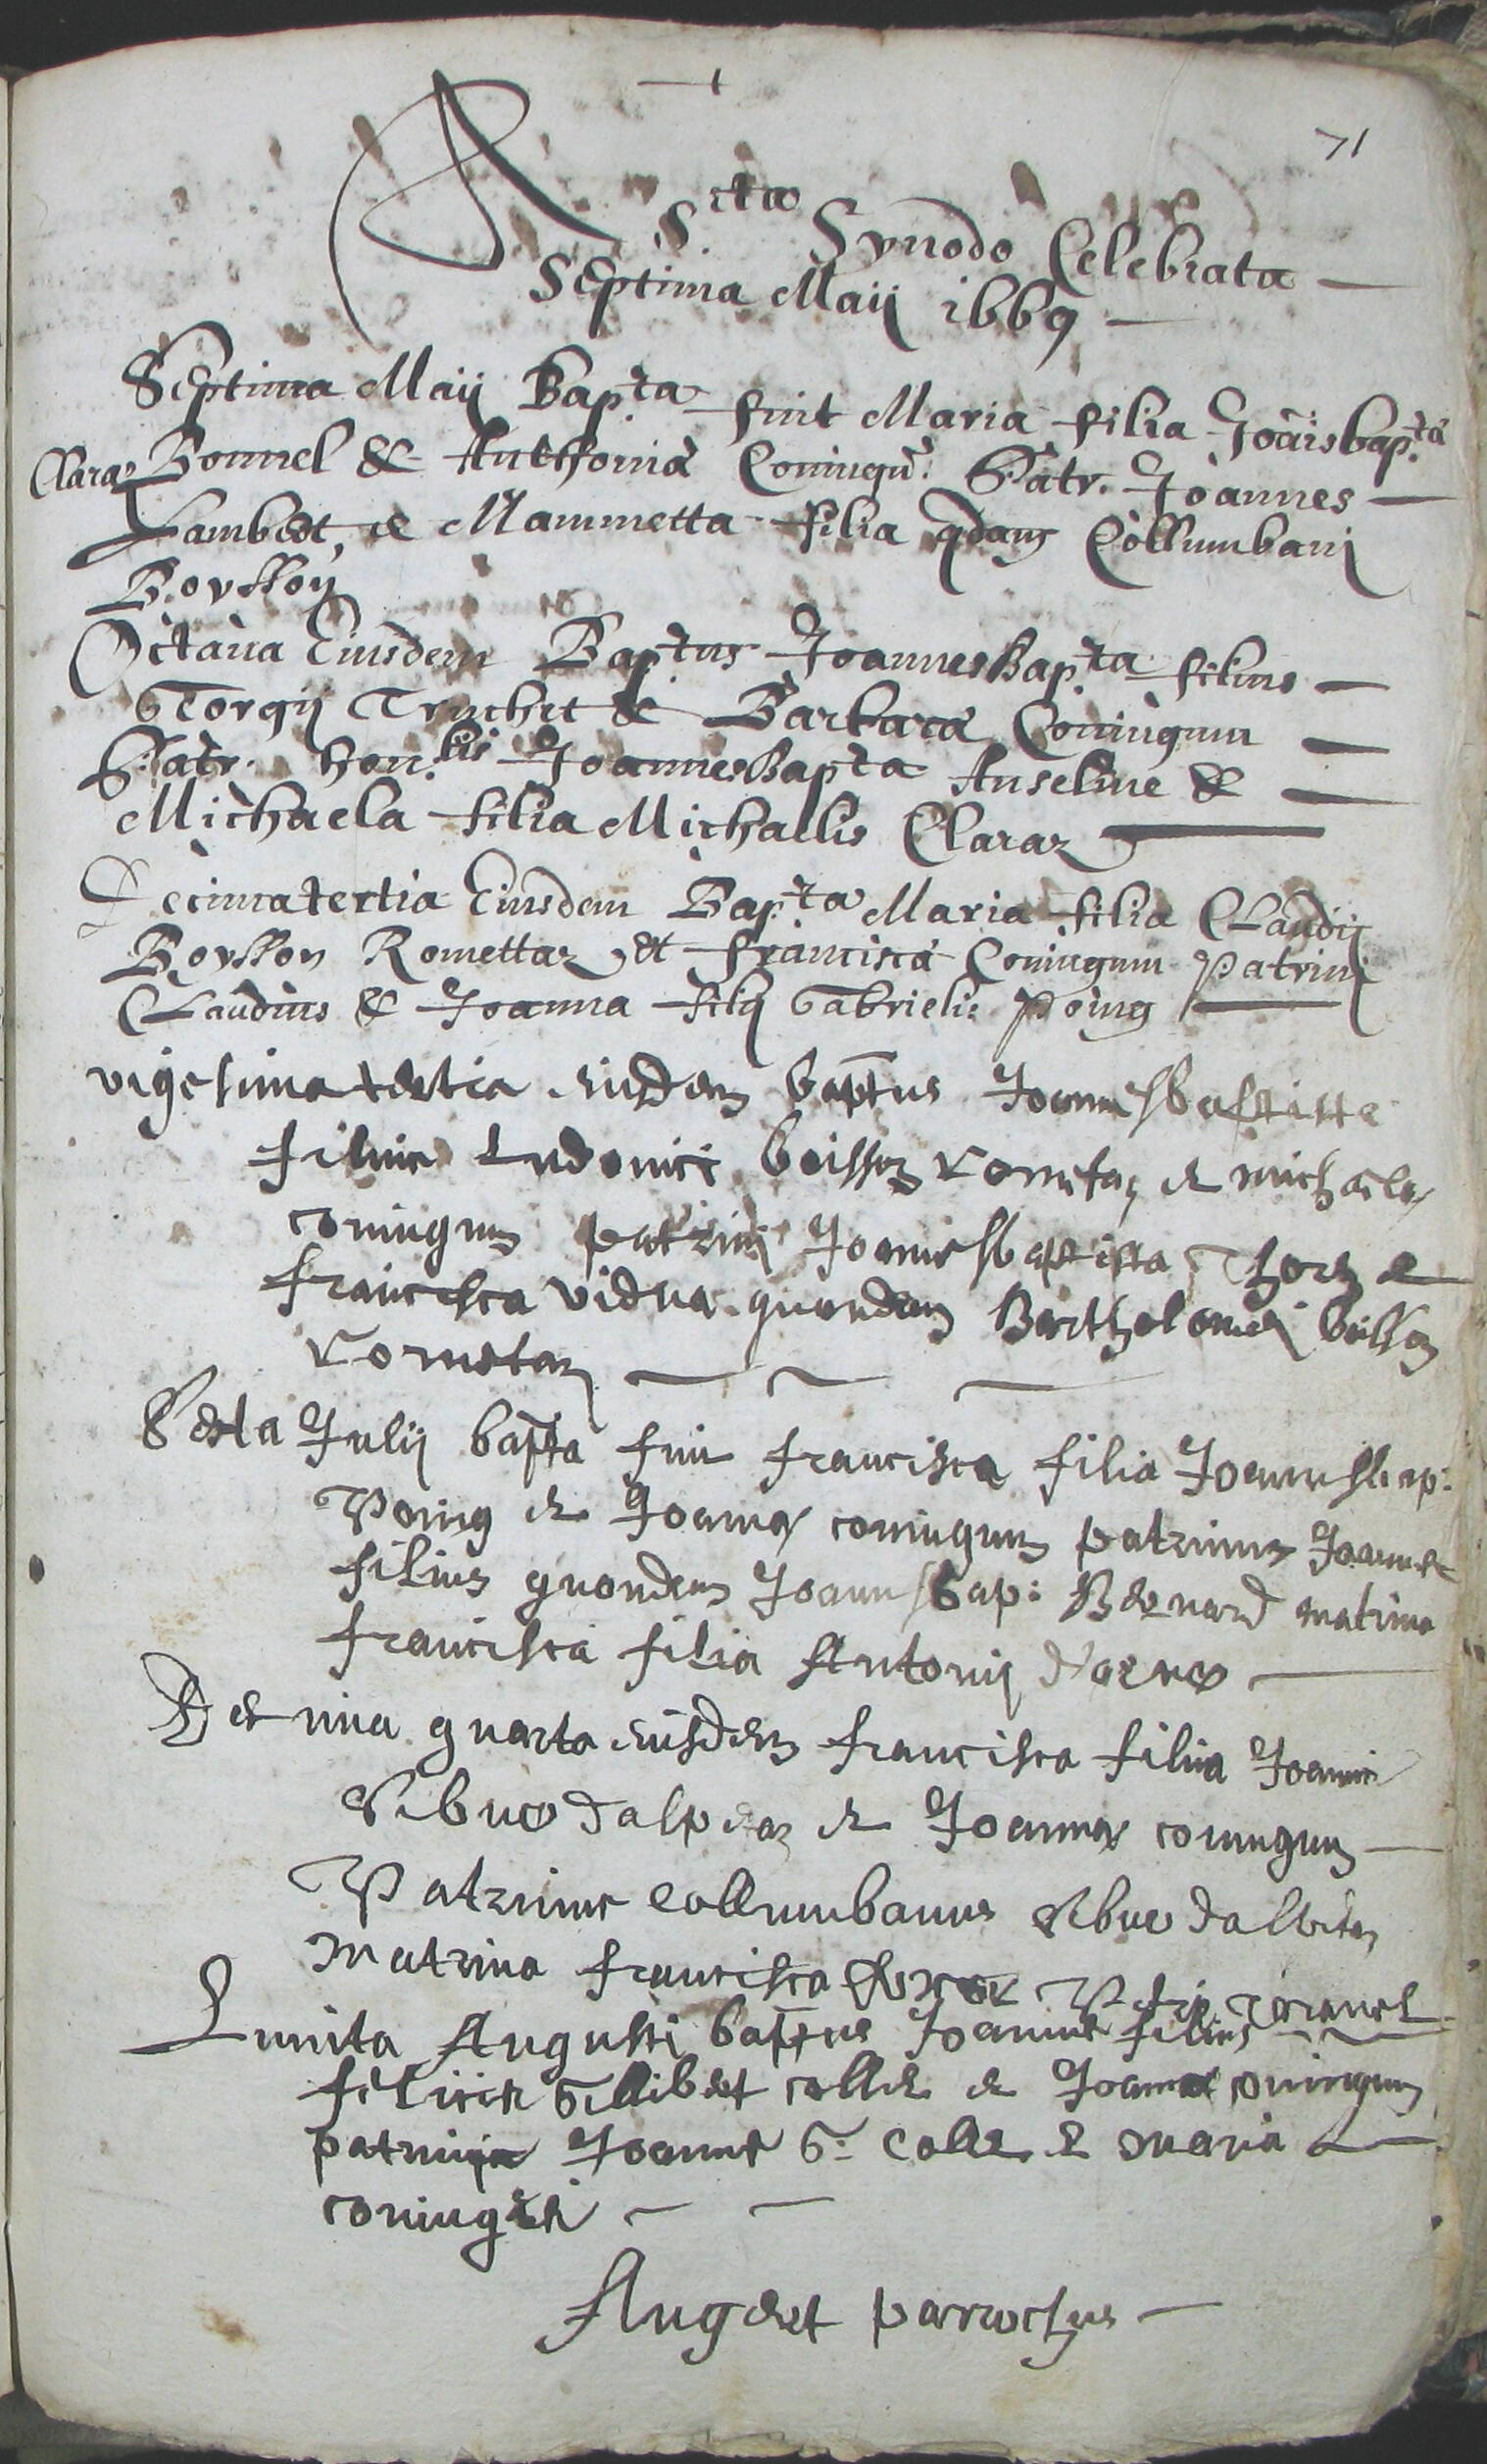 71
A Scta Synodo Celebrata
Septima Maij 1669
Septima Maij Bap.ta fuit Maria filia Joãisbap.ta
Claraz Bonnel & Anthonia Coniugũ. Patr. Joannes
Lambert, & Mammetta filia qdam Collumbani
Boysson
Octaua Eiusdem Bap.tus JoannesBap.ta filius
Georgij Truchet & Barbara Coniugum
Patr. hon.lis JoannesBapta Anselme &
Michaela filia Michaelis Claraz
Decimatertia Eiusdem Bap.ta Maria filia Claudij
Boysson Romettaz et francisca Coniugum Patrini
Claudius & Joanna filij Gabrielis Poing
vigesima tertia eiusdem baptus Joannesbaptista
filius Ludouici boisson rometaz & michaelae
coniugum patrini Joannesbaptista &
francisca vidua quondam Bartholomei boisson
rometaz
Sexta Julij bapta fuit francisca filia Joannisbap:
Poing & Joannae coniugum patrinus Joannes
filius quondam Joannisbap: Bernard matrina
francisca filia Antonij
Decima quarta eiusdem francisca filia Joannis
Sibue dalpetaz & Joannae coniugum
Patrinus Collumbanus Sibue
Matrina francisca
Augusti baptus Joannes filius
felicis Gillibert collet & Joannae coniugum
patrini Joannes G: collet & maria
coniuges
Augert parrochus